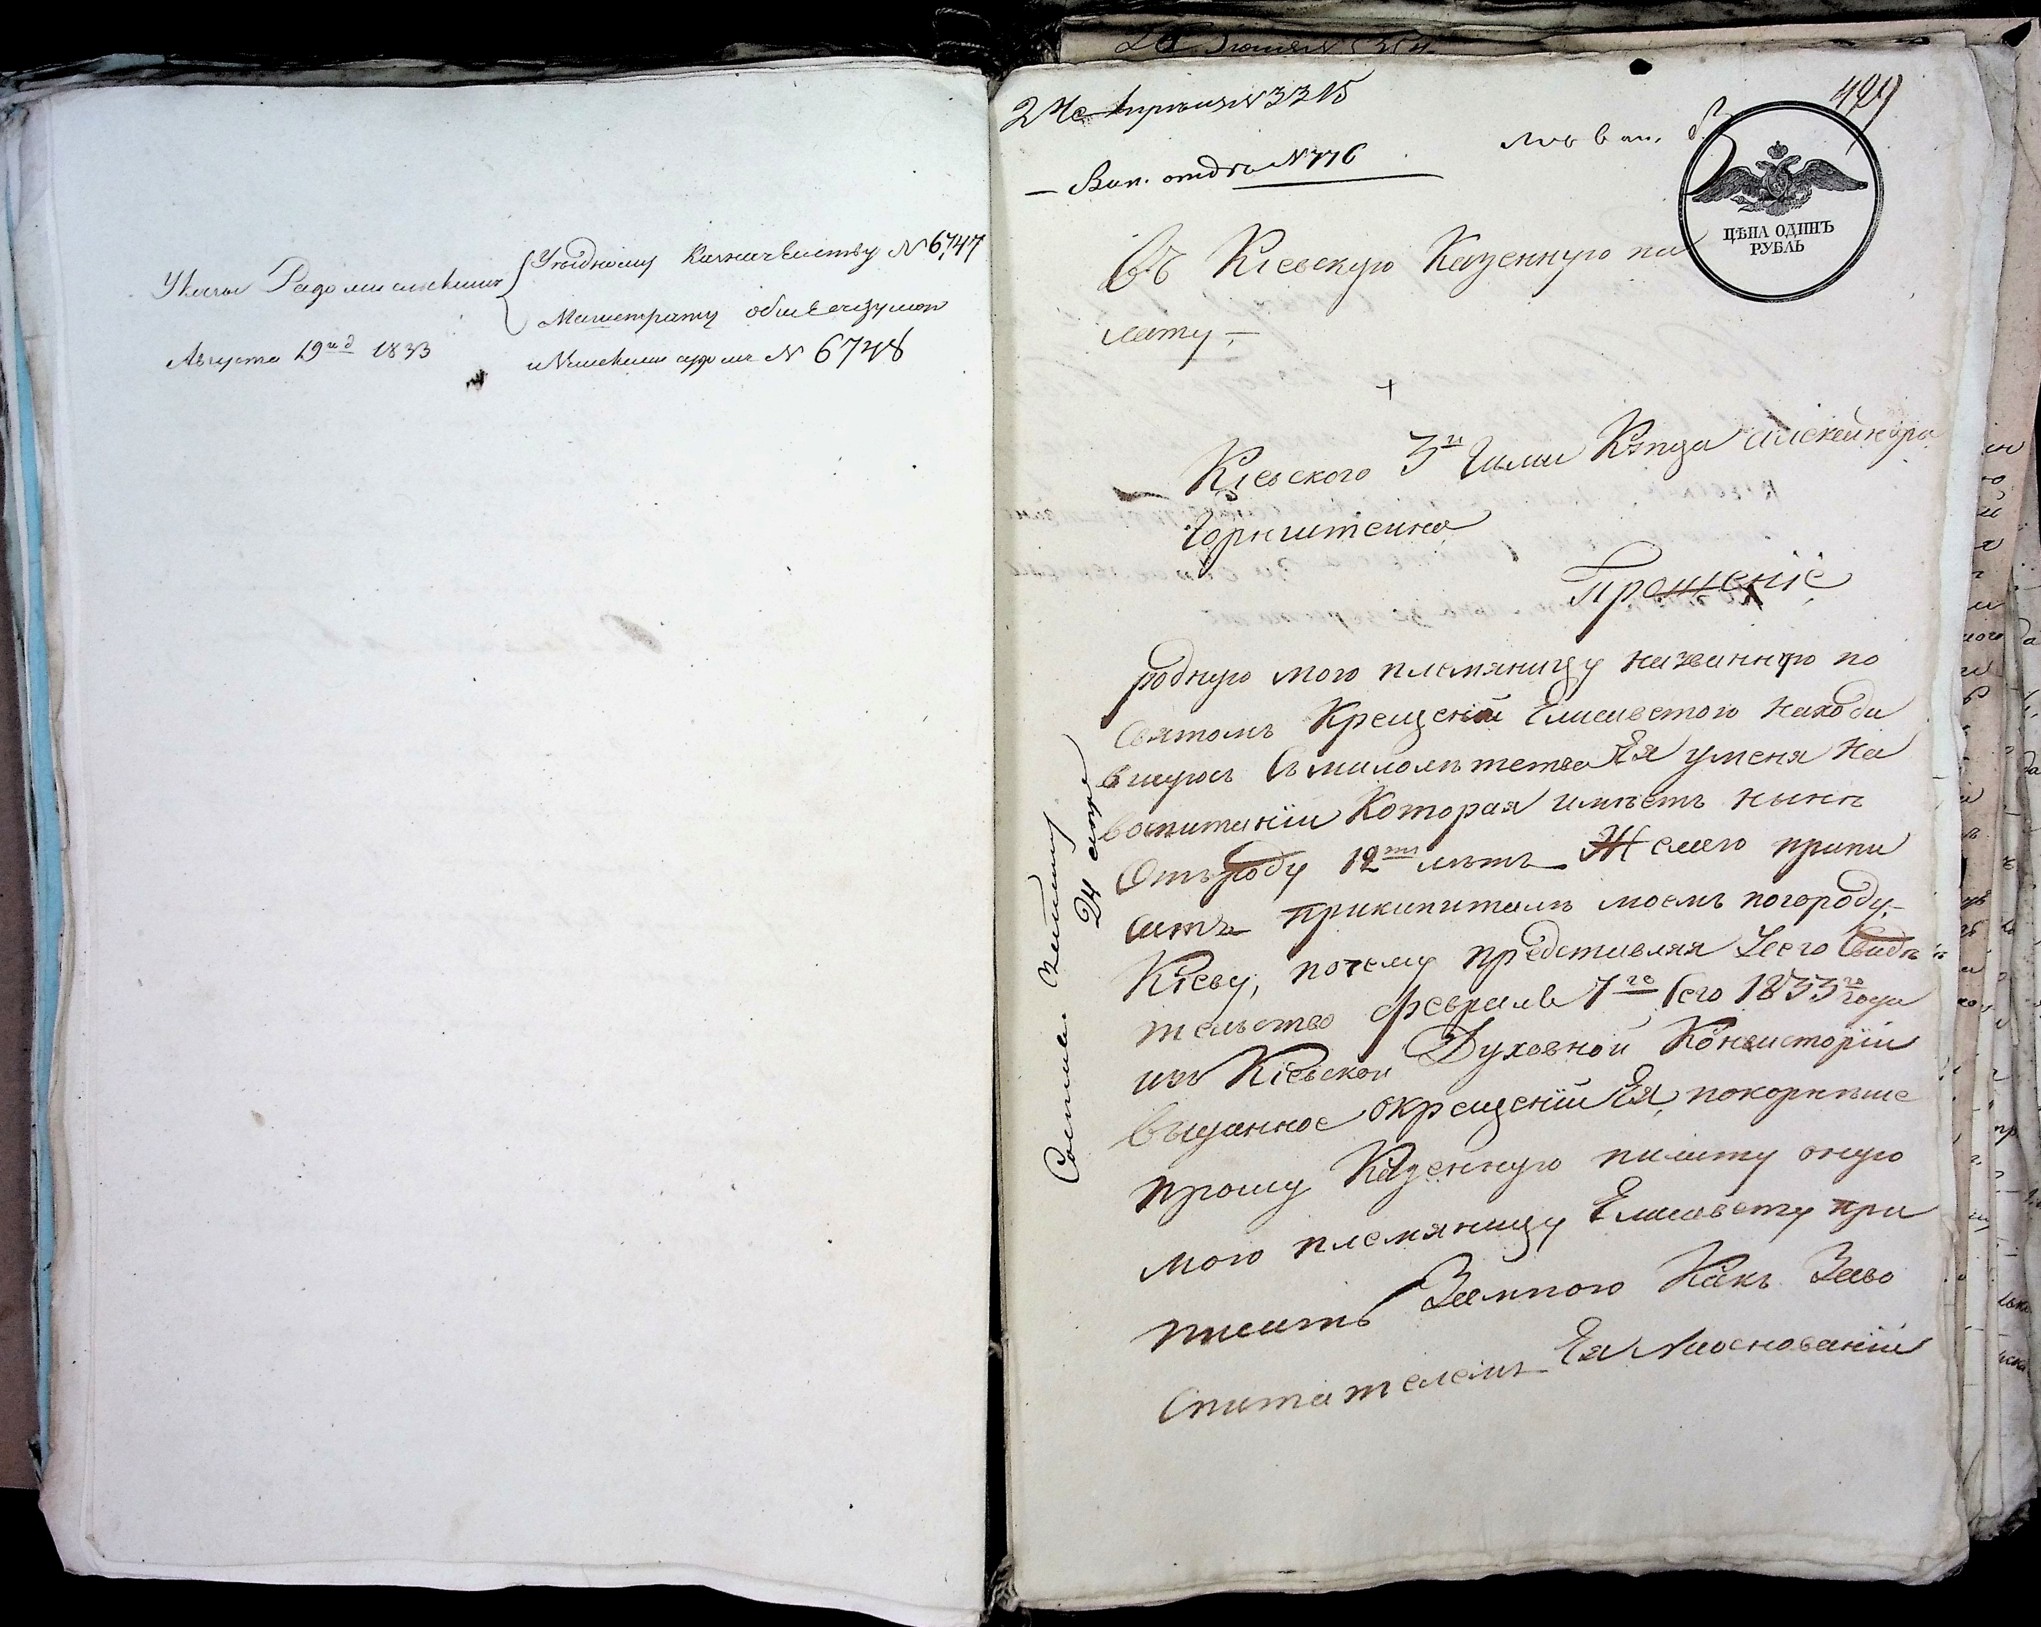 Указы Радомысльским
Уѣздному Казначейству № 6747
Магистрату обще с
Августа 19го д 1833
№ 6748
24е Апреля № 3315
Рев. отдѣл № 776
429
ЦѢНА ОДИНЪ
РУБЛЬ
Въ Кіевскую Казенную па
лату,
Кіевского 3й Гильи Купца Александра
Горнштейна
Прошеніе
родную мою племяницу названную по
Святомъ Крещеніи Елисаветою находи
вшуюсь Съ малолѣтства Ея у меня на
воспитаніи Которая имѣетъ нынѣ
Отъ роду 12ть лѣтъ Желаю припи
сать при капиталѣ моемъ по городу
Кіеву, почему представляя У сего Свидѣ
тельство февраля 7го Сего 1833го года
изъ Кіевской Духовной Консисторіи
выданное о крещеніи Ея, покорнѣше
прошу Казенную палату оную
мою племяницу Елисавету при
писать За мною Какъ За во
спитателемъ Ея На основаніи
24 апреля